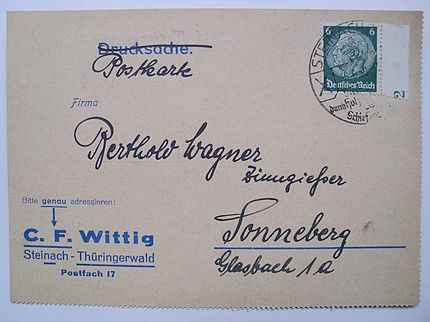 Drucksache.
Postkarte
6 6
Deutsches Reich
STEINACH
durch
Schief
2
Firma
Berthold Wagner
Zinngießer
Bitte genau adressieren:
C. F. Wittig
Steinach - Thüringerwald
Postfach 17
Sonneberg
Glasbach 1a